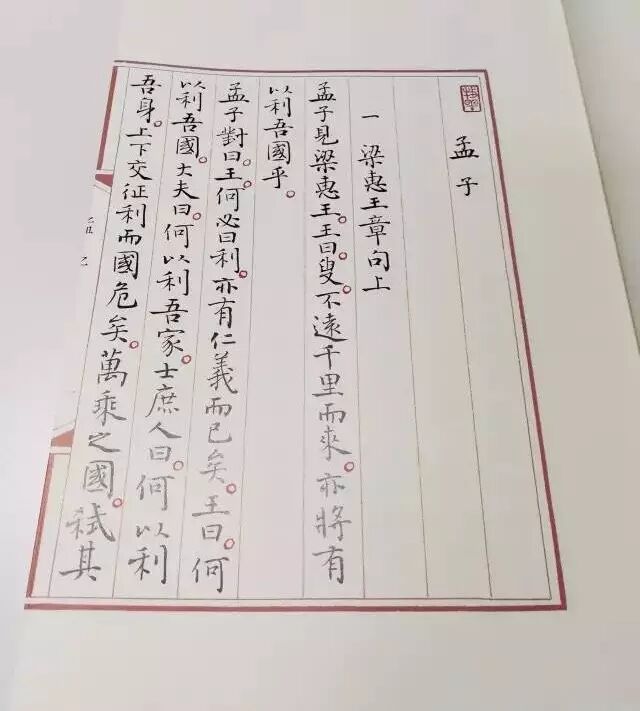 孟子
一 梁惠王章句上
孟子見梁惠王。王曰。叟。不遠千里而來。亦將有
以利吾國乎。
孟子對曰。王。何必曰利。亦有仁義而已矣。王曰。何
以利吾國。大夫曰。何以利吾家。士庶人曰。何以利
吾身。上下交征利而國危矣。萬乘之國。弒其